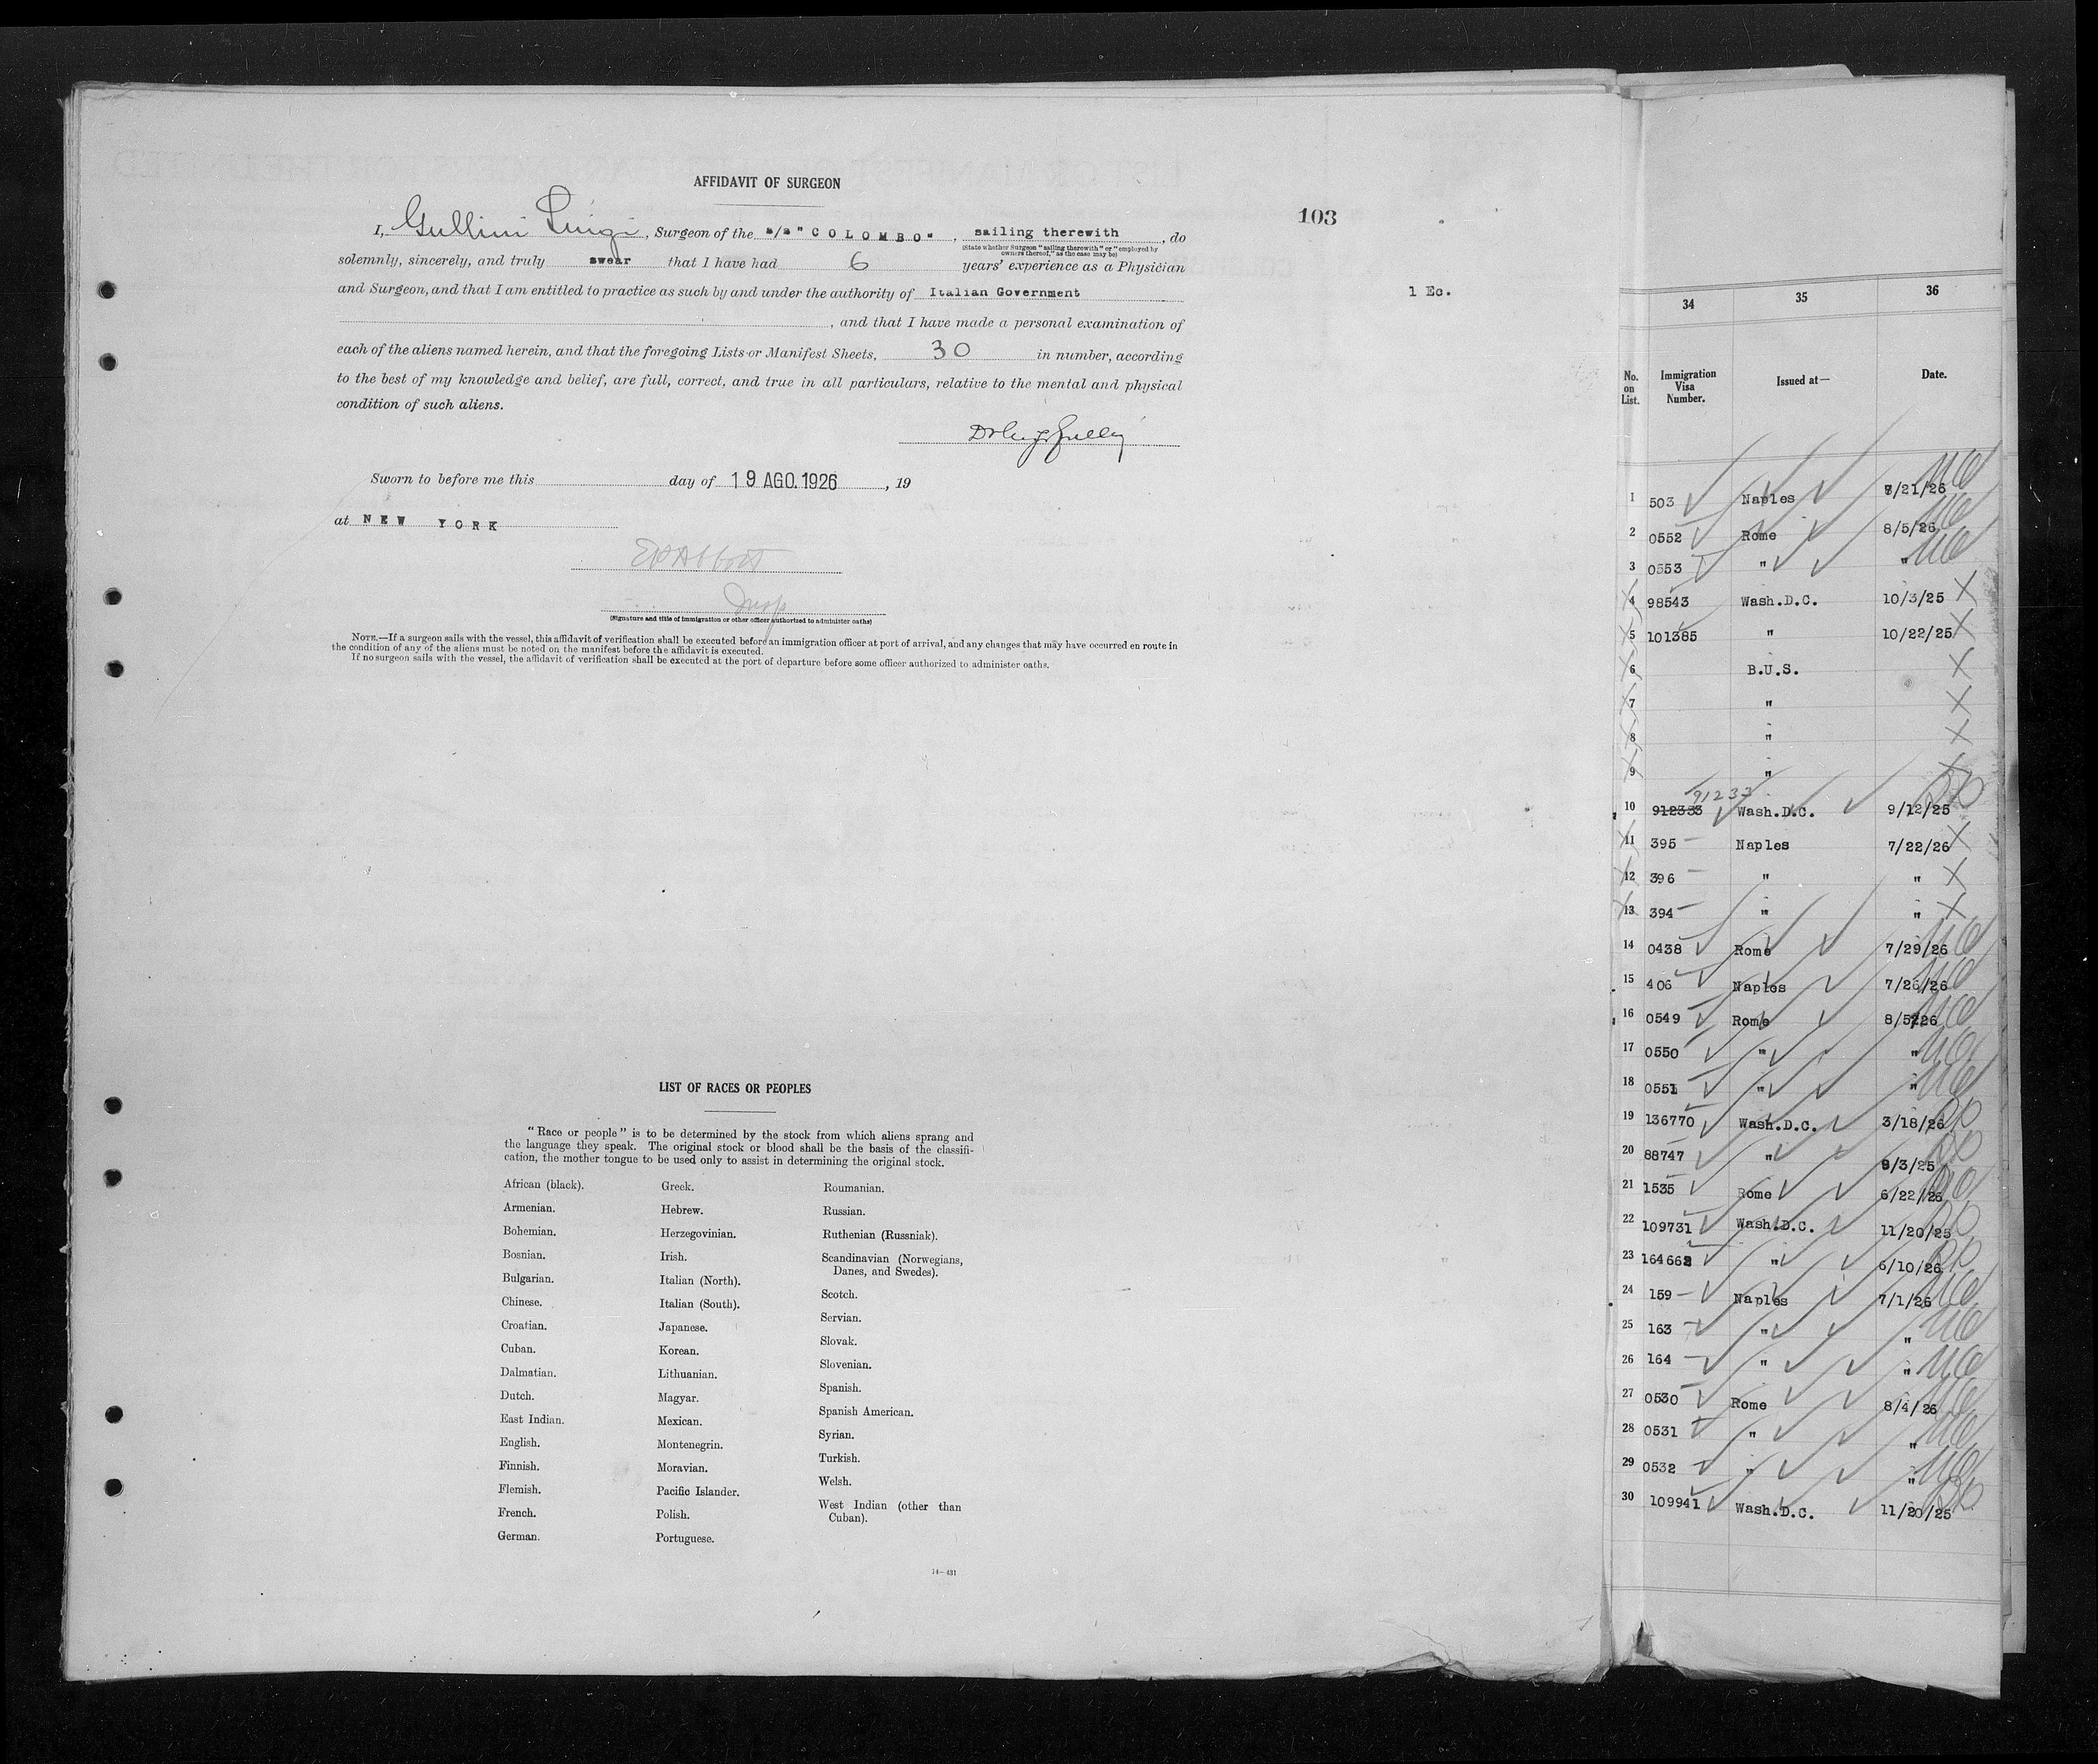 AFFIDAVIT OF SURGEON
103
I, Gullini Luigi, Surgeon of the s/s "COLOMBO", sailing therewith, do
(State whether Surgeon "sailing therewith" or "employed by
owners thereof," as the case may be)
solemnly, sincerely, and truly swear that I have had 6 years' experience as a Physician
and Surgeon, and that I am entitled to practice as such by and under the authority of Italian Government
1 Ec.
, and that I have made a personal examination of
each of the aliens named herein, and that the foregoing Lists or Manifest Sheets, 30 in number, according
to the best of my knowledge and belief, are full, correct, and true in all particulars, relative to the mental and physical
condition of such aliens.
Sworn to before me this day of 19 AGO. 1926, 19
at NEW YORK
(Signature and title of immigration or other officer authorized to administer oaths)
NOTE.—If a surgeon sails with the vessel, this affidavit of verification shall be executed before an immigration officer at port of arrival, and any changes that may have occurred en route in
the condition of any of the aliens must be noted on the manifest before the affidavit is executed.
If no surgeon sails with the vessel, the affidavit of verification shall be executed at the port of departure before some officer authorized to administer oaths.
LIST OF RACES OR PEOPLES
"Race or people" is to be determined by the stock from which aliens sprang and
the language they speak. The original stock or blood shall be the basis of the classifi-
cation, the mother tongue to be used only to assist in determining the original stock.
African (black). Greek. Roumanian.
Armenian. Hebrew. Russian.
Bohemian. Herzegovinian. Ruthenian (Russniak).
Bosnian. Irish. Scandinavian (Norwegians,
Danes, and Swedes).
Bulgarian. Italian (North).
Scotch.
Chinese. Italian (South).
Servian.
Croatian. Japanese.
Slovak.
Cuban. Korean.
Slovenian.
Dalmatian. Lithuanian.
Spanish.
Dutch. Magyar.
Spanish American.
East Indian. Mexican.
Syrian.
English. Montenegrin.
Turkish.
Finnish. Moravian.
Welsh.
Flemish. Pacific Islander.
West Indian (other than
Cuban).
French. Polish.
German. Portuguese.
14—431
34 35 36
No. on List. Immigration Visa Number. Issued at— Date.
1 503 Naples 7/21/26
2 0552 Rome 8/5/26
3 0553 " "
4 98543 Wash.D.C. 10/3/25
5 101385 " 10/22/25
6 B.U.S.
7 "
8 "
9 "
91233
10 912333 Wash.D.C. 9/12/25
11 395 Naples 7/22/26
12 396 " "
13 394 " "
14 0438 Rome 7/29/26
15 406 Naples 7/26/26
16 0549 Rome 8/5/26
17 0550 " "
18 0551 " "
19 136770 Wash.D.C. 3/18/26
20 88747 " 9/3/25
21 1535 Rome 6/22/26
22 109731 Wash.D.C. 11/20/25
23 164662 " 6/10/26
24 159 Naples 7/1/26
25 163 " "
26 164 " "
27 0530 Rome 8/4/26
28 0531 " "
29 0532 " "
30 109941 Wash.D.C. 11/20/25